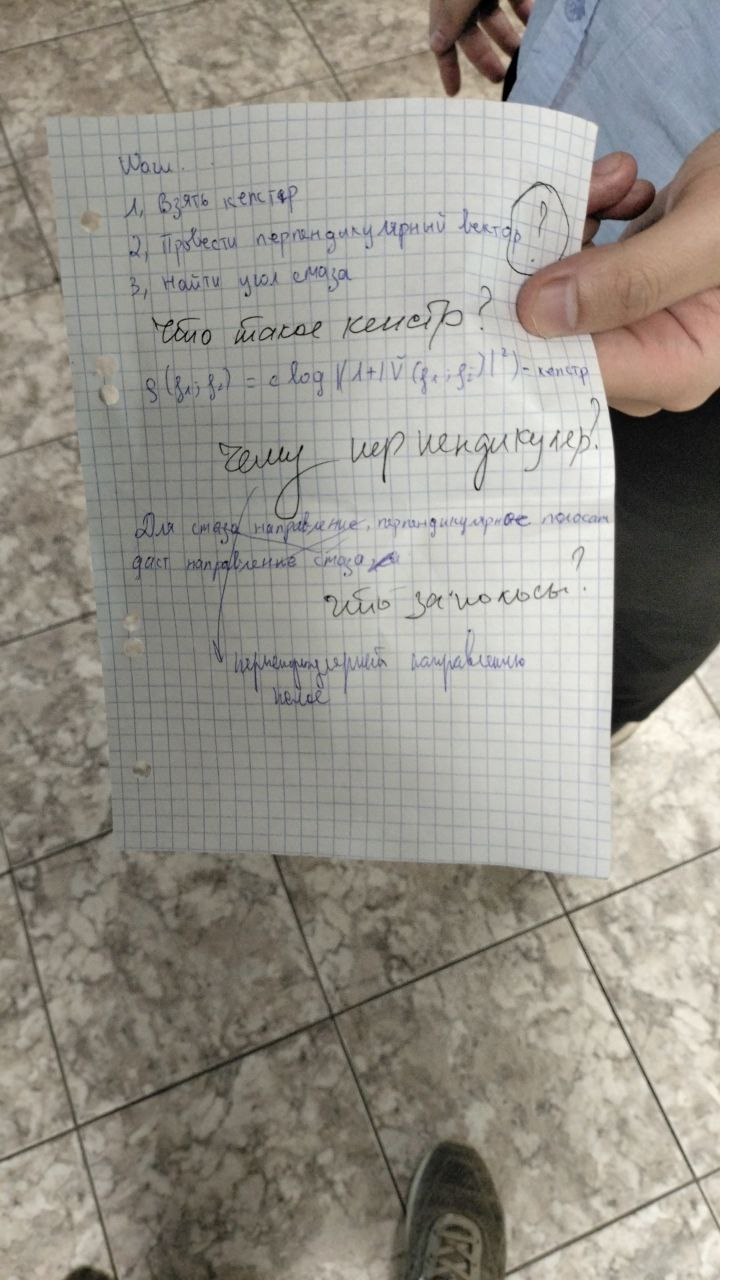 Шаг.
1, Взять кепстр
2, Провести перпендикулярный вектор ?
3, Найти угол смаза
Что такое кепстр?
g(f₁; f₂) = c log |(1+|V̌(f₁; f₂)|²) - кепстр
Чему перпендикуляр?
Для смаза направление, перпендикулярное полосам
даст направление смаза
Что за полосы?
перпендикулярный направлению
полос